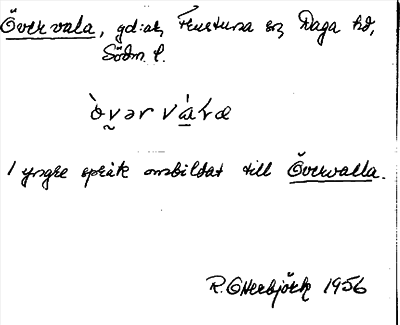 Övervala, gd:ar, Frustuna sn, Daga hd,
Södm. l.
I yngre språk ombildat till Övervalla.
R. Otterbjörk 1956